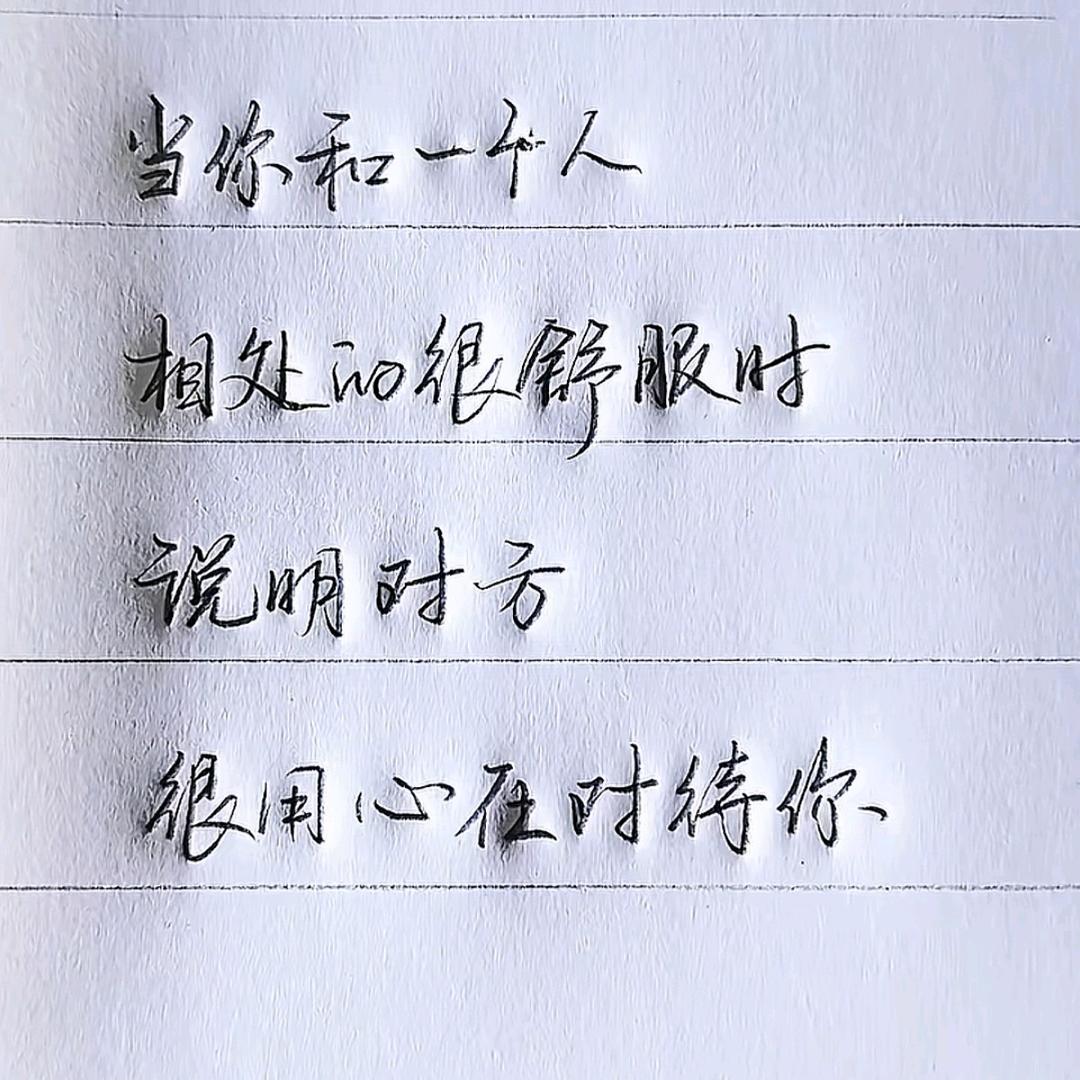 当你和一个人
相处的很舒服时
说明对方
很用心在对待你